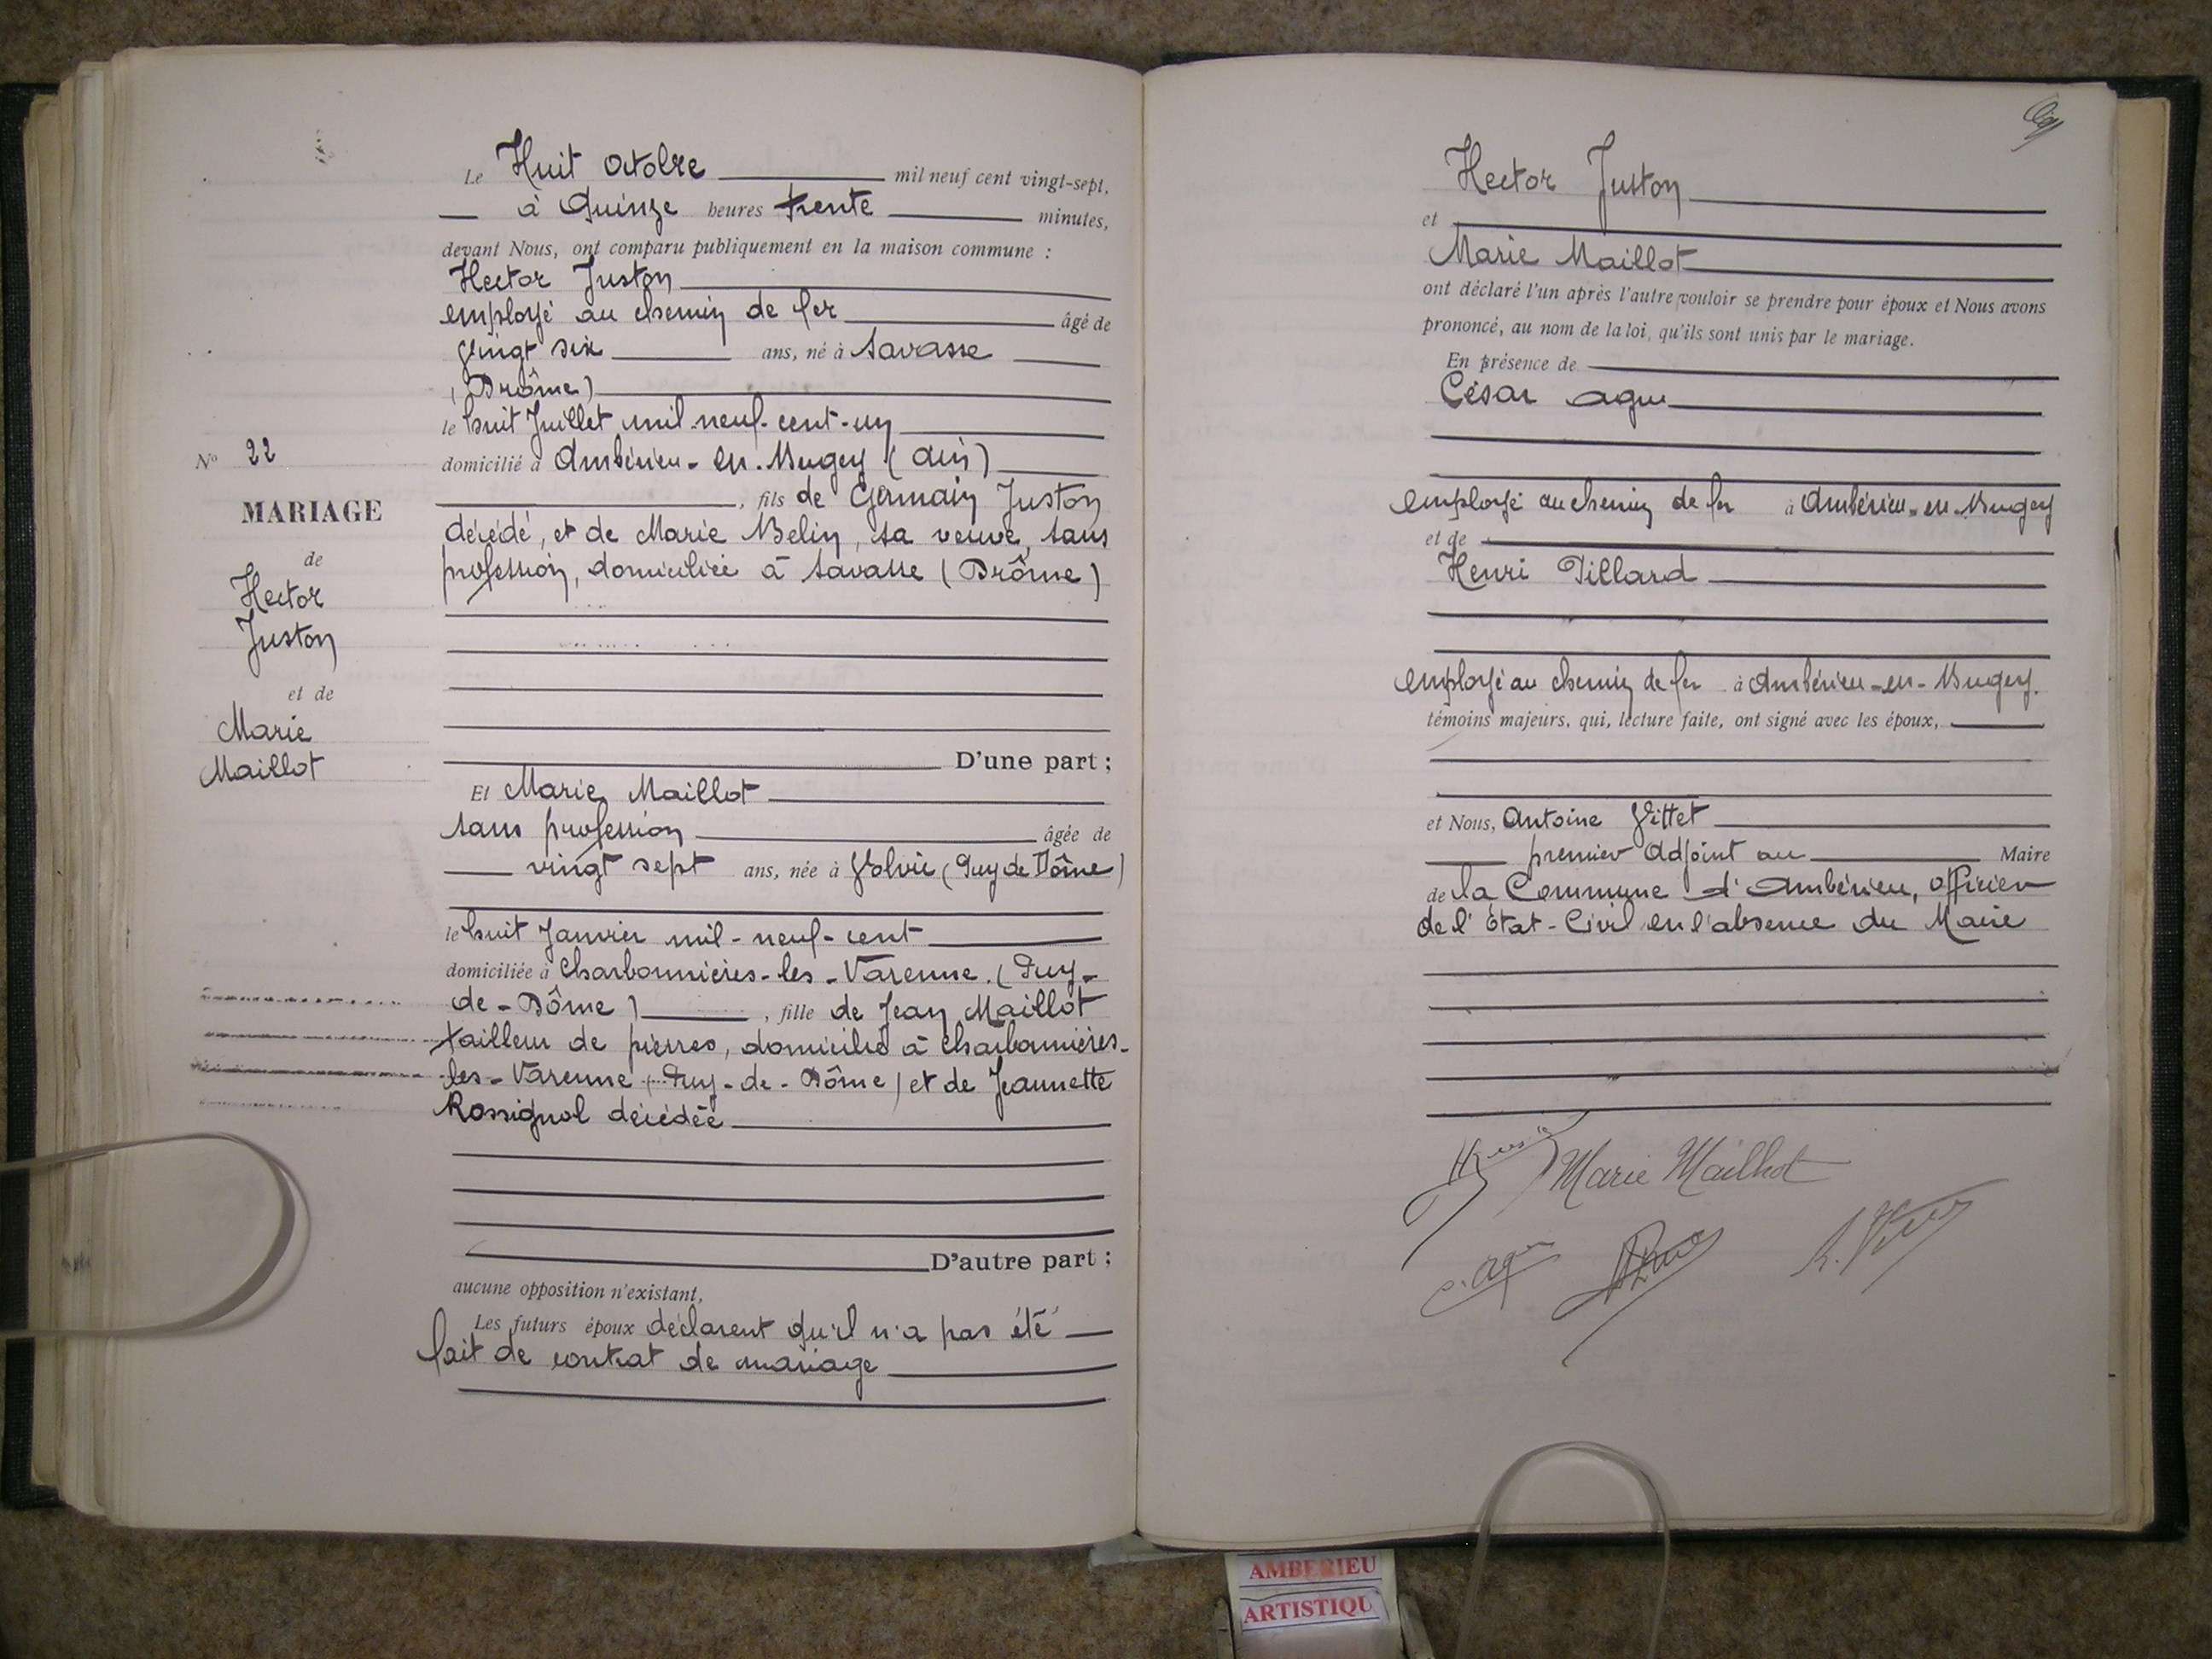 Le Huit Octobre mil neuf cent vingt-sept,
à Quinze heures trente minutes,
devant Nous, ont comparu publiquement en la maison commune :
Hector Juston
employé au chemin de fer âgé de
Vingt six ans, né à Savasse
(Drôme)
le huit Juillet mil-neuf-cent-un
domicilié à Ambérieu-en-Bugey (Ain)
, fils de Germain Juston
décédé, et de Marie Belin, sa veuve, sans
profession, domiciliée à Savasse (Drôme)
D'une part ;
Nº 22
MARIAGE
de
Hector
Juston
et de
Marie
Maillot
Et Marie Maillot
sans profession âgée de
vingt sept ans, née à Volvic (Puy de Dôme)
le huit Janvier mil-neuf-cent
domiciliée à Charbonnières-les-Varenne (Puy-
de-Dôme) , fille de Jean Maillot
tailleur de pierres, domicilié à Charbonnières-
les-Varenne (Puy-de-Dôme) et de Jeannette
Rossignol décédée
D'autre part ;
aucune opposition n'existant,
Les futurs époux déclarent qu'il n'a pas été
fait de contrat de mariage
Hector Juston
et
Marie Maillot
ont déclaré l'un après l'autre vouloir se prendre pour époux et Nous avons
prononcé, au nom de la loi, qu'ils sont unis par le mariage.
En présence de
César Agu
employé au chemin de fer à Ambérieu-en-Bugey
et de
Henri Pillard
employé au chemin de fer à Ambérieu-en-Bugey.
témoins majeurs, qui, lecture faite, ont signé avec les époux,
et Nous, Antoine Vittet
premier Adjoint au Maire
de la Commune d'Ambérieu, Officier
de l'Etat-Civil en l'absence du Maire
Marie Mailhot
AMBERIEU
ARTISTIQU